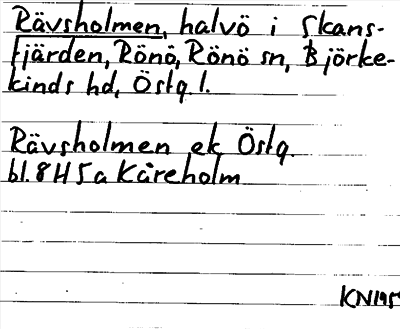 Rävsholmen, halvö i Skans-
fjärden, Rönö, Rönö sn, Björke-
kinds hd, Östg l.
Rävsholmen ek Östg.
bl. 8 H 5 a Kåreholm